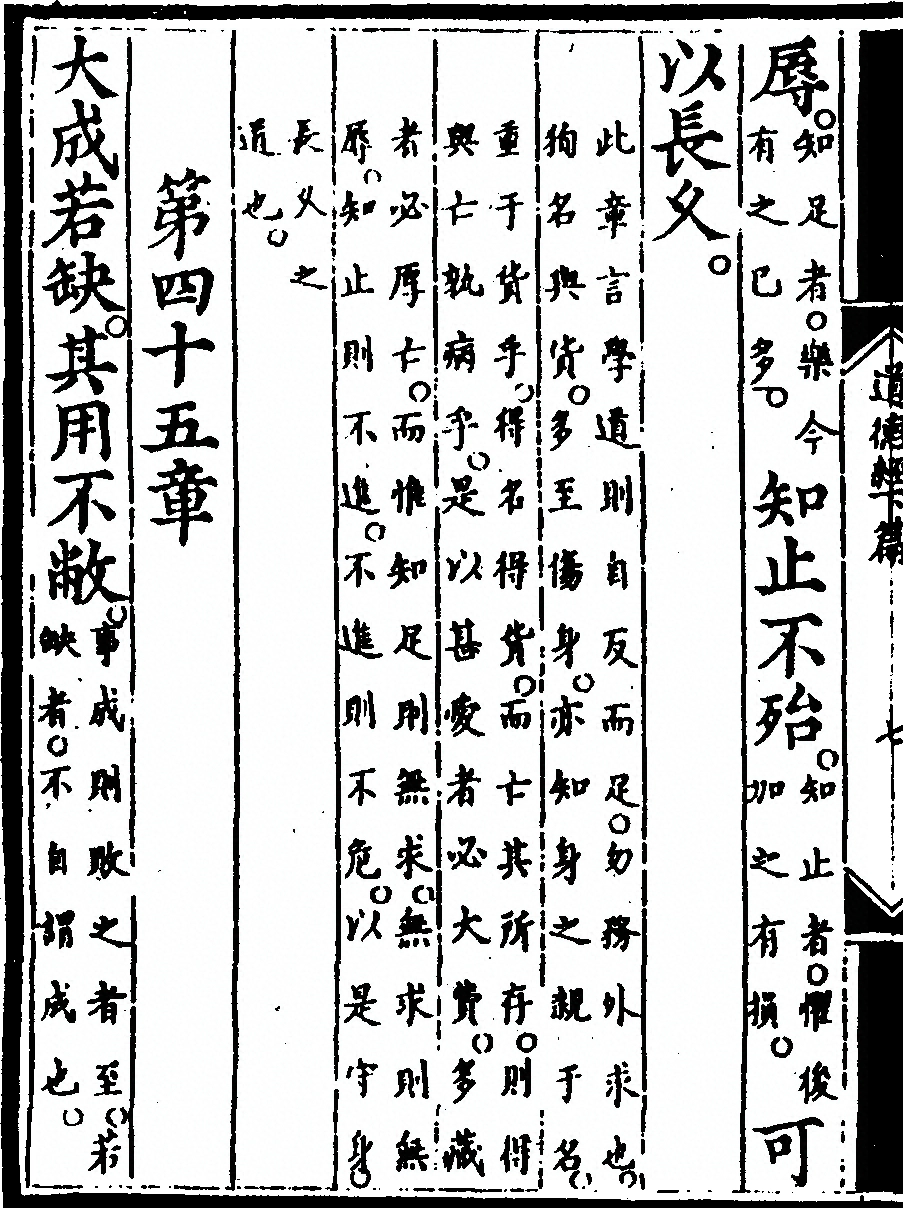 道德經下篇
七
辱。知足者。樂今有之已多。知止不殆。知止者。懼後加之有損。可
以長久。
此章言學道則自反而足。勿務外求也。
狥名與貨。多至傷身。亦知身之親于名。
重于貨乎。得名得貨。而亡其所存。則得
與亡孰病乎。是以甚愛者必大費。多藏
者必厚亡。而惟知足則無求。無求則無
辱。知止則不進。不進則不危。以是守身。
長久之
道也。
第四十五章
大成若缺。其用不敝。事成則敗之者至。若缺者。不自謂成也。